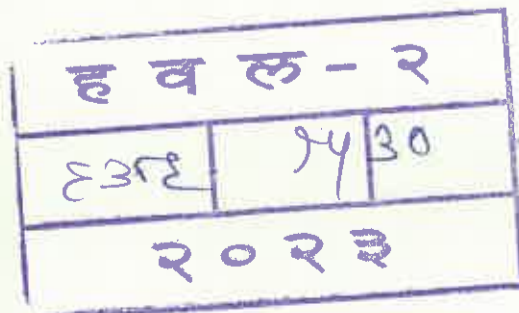 ह व ल - २
६३९६ १५ ३०
२०२३